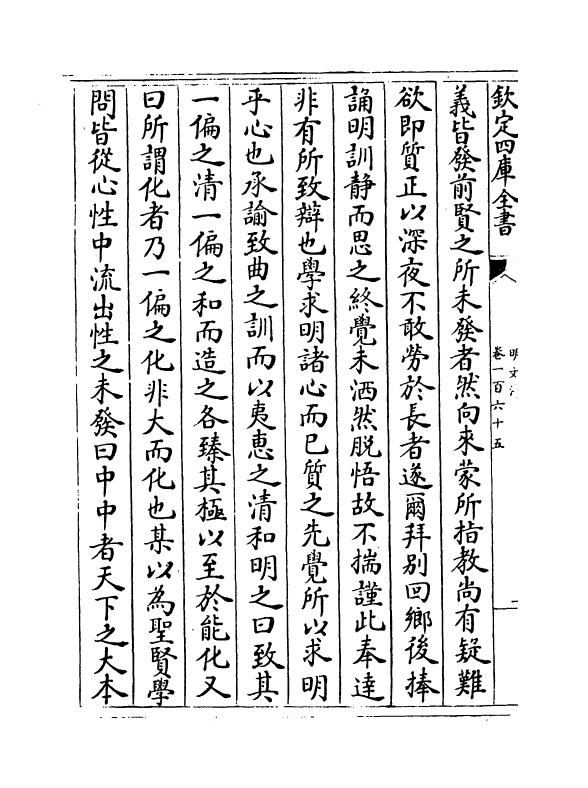 欽定四庫全書
明文海
卷一百六十五
二
義皆發前賢之所未發者然向來蒙所指教尚有疑難
欲即質正以深夜不敢勞於長者遂爾拜别回鄉後捧
誦明訓静而思之終覺未洒然脱悟故不揣謹此奉達
非有所致辯也學求明諸心而已質之先覺所以求明
乎心也承諭致曲之訓而以夷惠之清和明之曰致其
一偏之清一偏之和而造之各臻其極以至於能化又
曰所謂化者乃一偏之化非大而化也某以為聖賢學
問皆從心性中流出性之未發曰中中者天下之大本